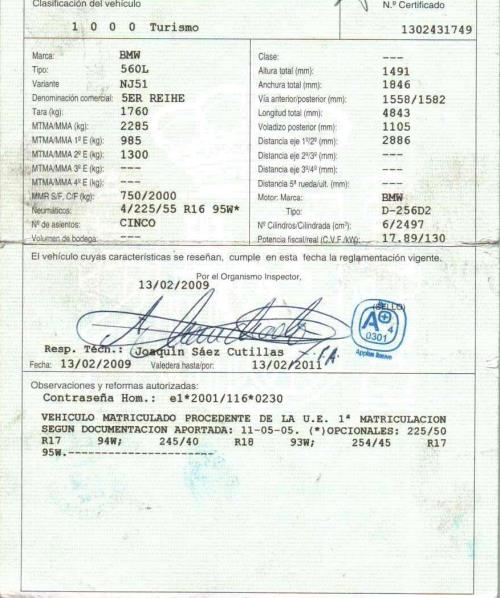 Clasificación del vehículo
N.º Certificado
1 0 0 0 Turismo
1302431749
Marca: BMW
Tipo: 560L
Variante NJ51
Denominación comercial: 5ER REIHE
Tara (kg): 1760
MTMA/MMA (kg): 2285
MTMA/MMA 1º E (kg): 985
MTMA/MMA 2º E (kg): 1300
MTMA/MMA 3º E (kg): ---
MTMA/MMA 4º E (kg): ---
MMR S/F, C/F (kg): 750/2000
Neumáticos: 4/225/55 R16 95W*
Nº de asientos: CINCO
Volumen de bodega: ---
Clase: ---
Altura total (mm): 1491
Anchura total (mm): 1846
Vía anterior/posterior (mm): 1558/1582
Longitud total (mm): 4843
Voladizo posterior (mm): 1105
Distancia eje 1º/2º (mm): 2886
Distancia eje 2º/3º (mm): ---
Distancia eje 3º/4º (mm): ---
Distancia 5ª rueda/ult. (mm): ---
Motor: Marca: BMW
Tipo: D-256D2
Nº Cilindros/Cilindrada (cm³): 6/2497
Potencia fiscal/real (C.V.F./kW): 17.89/130
El vehículo cuyas características se reseñan, cumple en esta fecha la reglamentación vigente.
Por el Organismo Inspector,
13/02/2009
(SELLO)
A+
4
0301
Applus Iteuve
Resp. Técn.: Joaquín Sáez Cutillas
Fecha: 13/02/2009 Valedera hasta/por: 13/02/2011
Observaciones y reformas autorizadas:
Contraseña Hom.: e1*2001/116*0230
VEHICULO MATRICULADO PROCEDENTE DE LA U.E. 1ª MATRICULACION
SEGUN DOCUMENTACION APORTADA: 11-05-05. (*)OPCIONALES: 225/50
R17 94W; 245/40 R18 93W; 254/45 R17
95W.--------------------